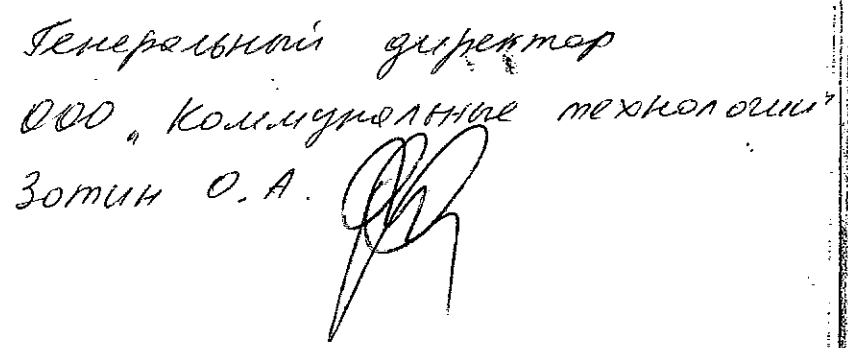 Генеральный директор
ООО „Коммунальные технологии"
Зотин О.А.